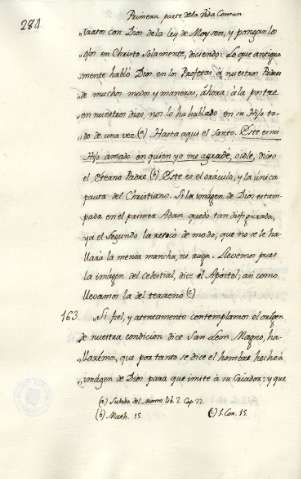 284
Primera parte de la Vida Comun
raron con Dios de la ley de Moyses, y pongan los
ojos en Christo Solamente, diciendo: Lo que antigua-
mente habló Dios en los Profetas à nuestros Padres
de muchos modos y maneras, áhora à la postre
en nuestros dias, nos lo ha hablado en su Hijo to-
do de una vez. (a) Hasta aqui el Santo. Este es mi
Hijo àmado en quien yo me agradé, oidle, dixo
el Eterno Padre. (b) Este es el oráculo, y la única
pauta del Christiano. Si la imágen de Dios estam-
pada en el primer Adan, quedó tan desfigurada,
ya el Segundo la retocó de modo, que no se le ha-
llará la menor mancha, ni ruga. Llevemos pues
la imágen del celestial, dice el Apostol, asi como
llevamos la del terreno (c)
163. Si fiel, y atentamente contemplamos el orígen
de nuestra condicion dice San Leon Magno, ha-
llarémos, que por tanto se dice el hombre hechó à
imágen de Dios para que imite à su Criador; y que
(a) Subida del monte lib. 2. Cap. 22.
(b) Math. 15. (c) 1. Cor. 15.